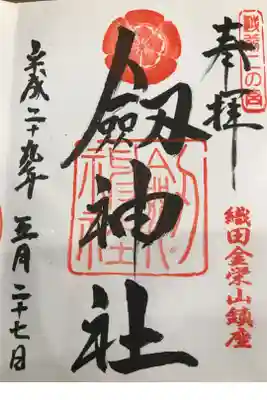 越前二の宮
奉拝
織田金栄山鎮座
劔神社
劔神社
平成二十九年五月二十七日